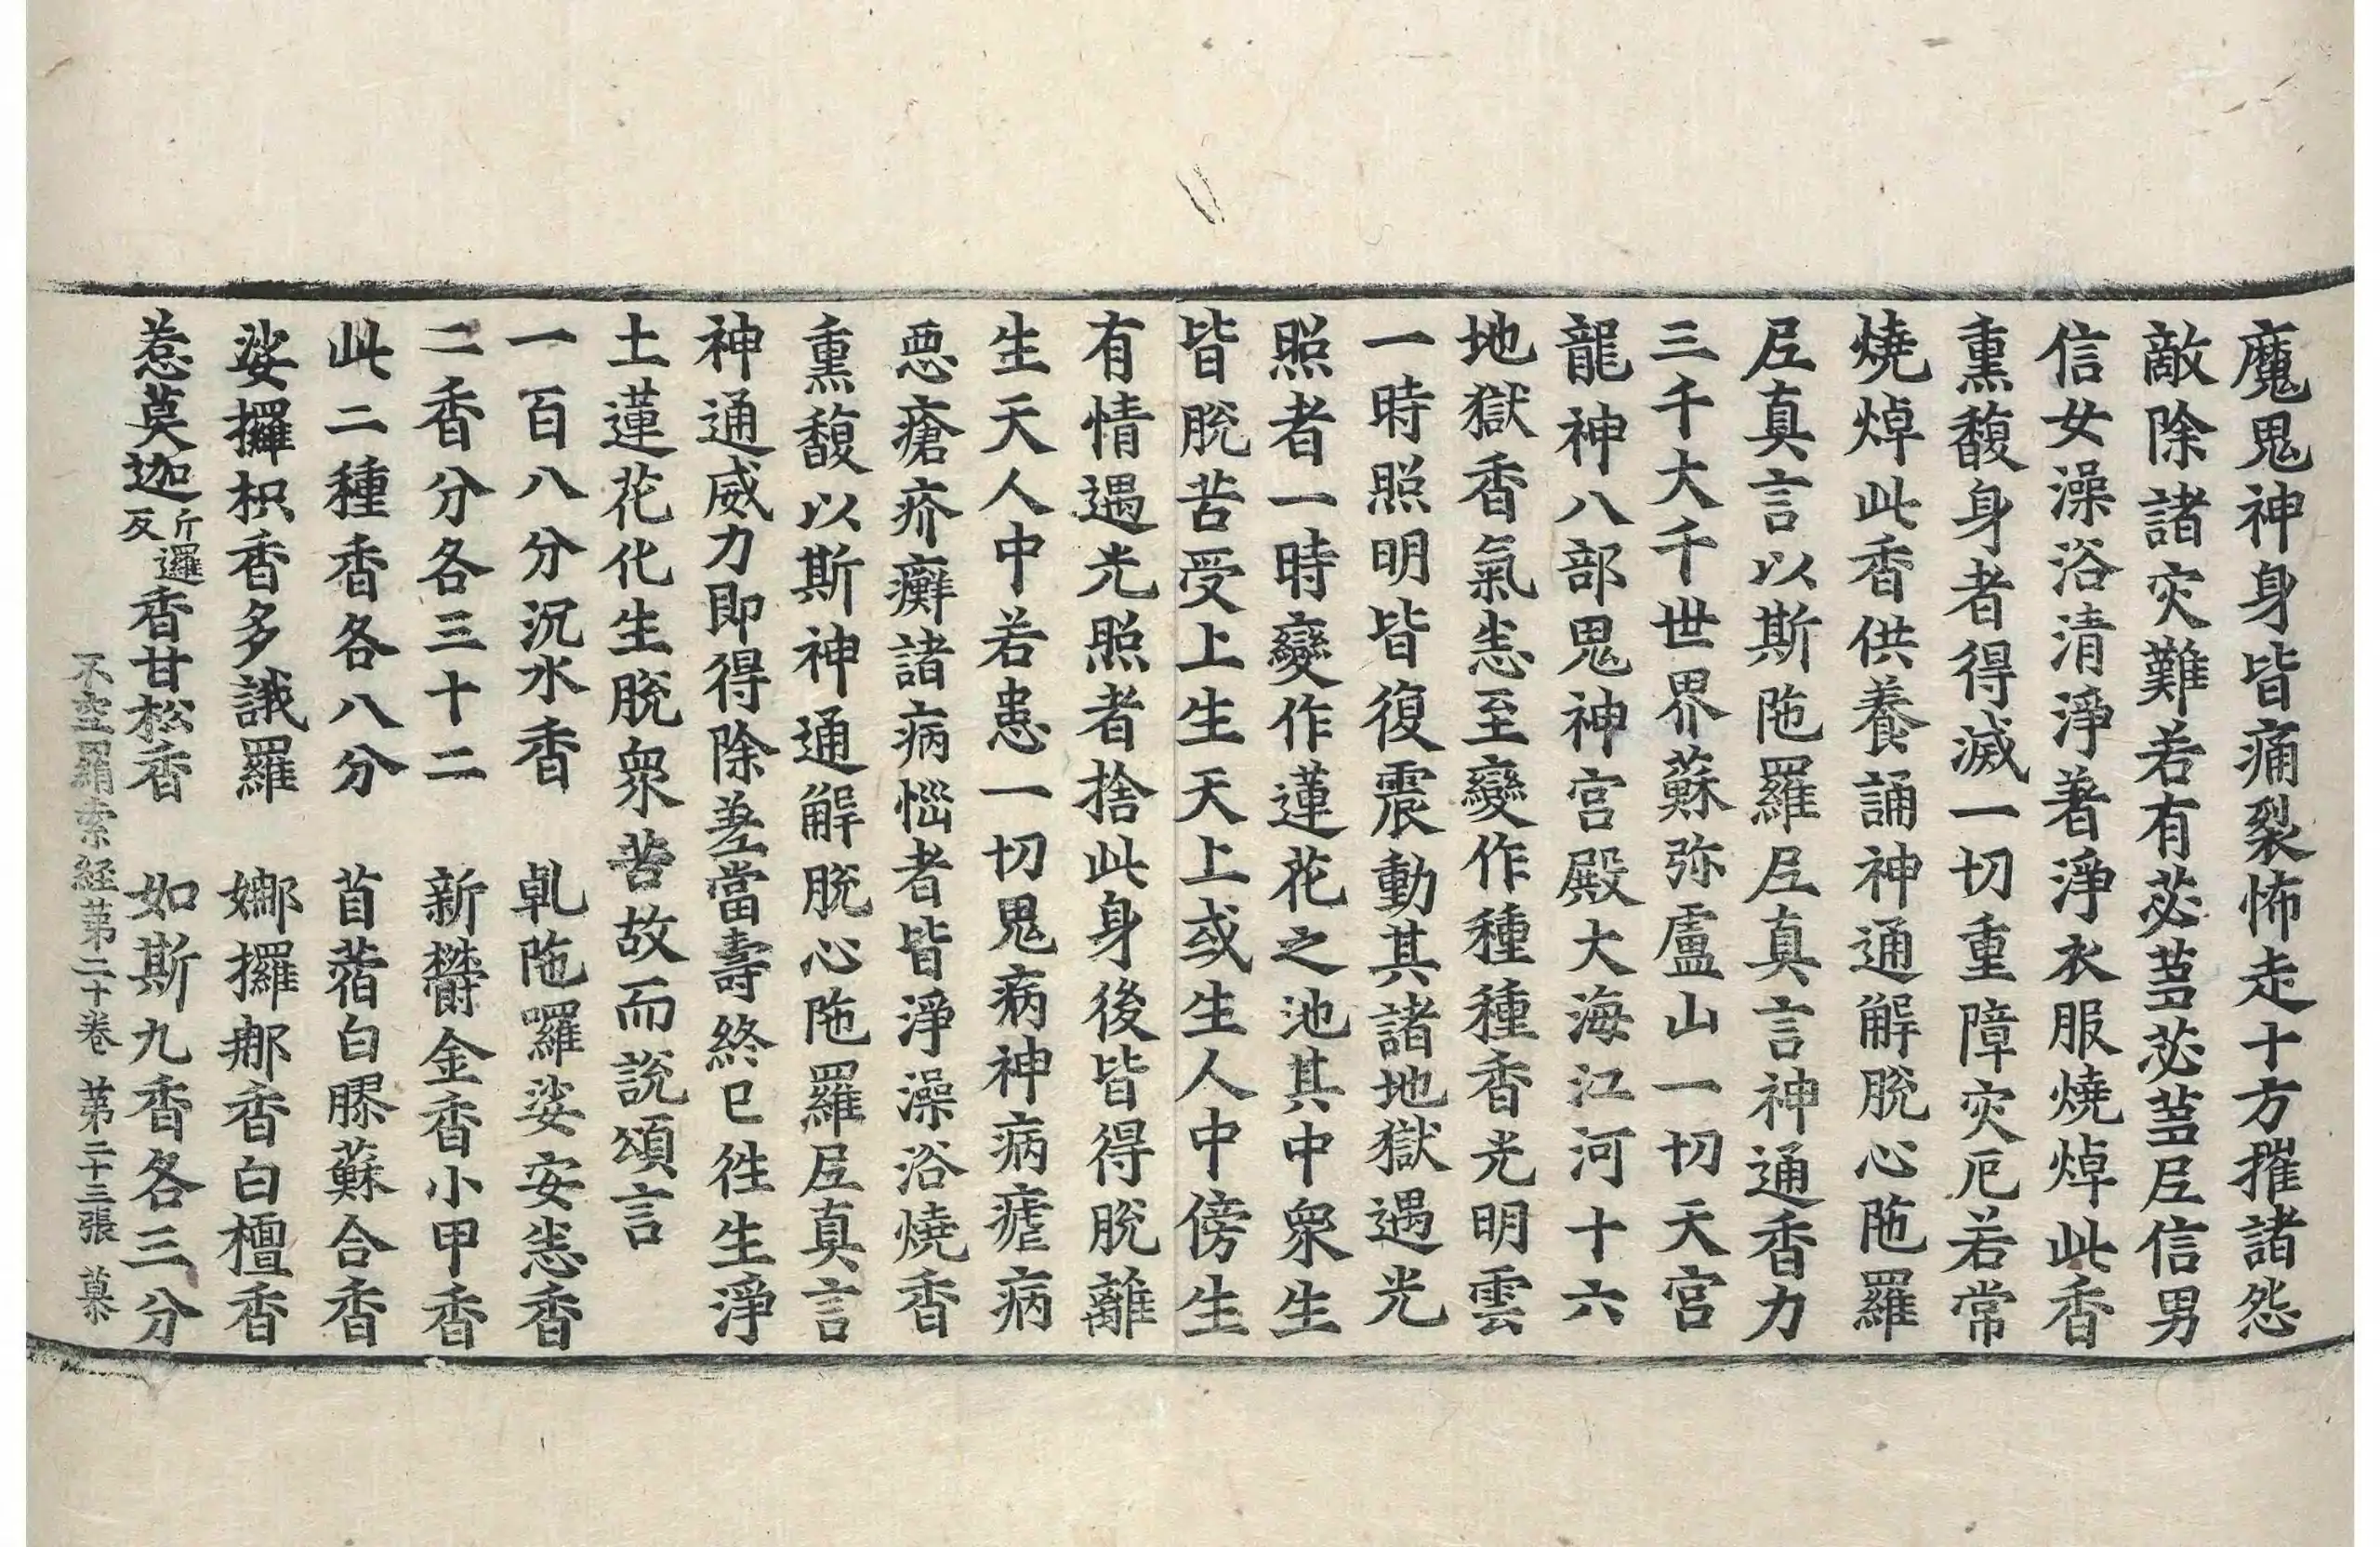 魔鬼神身皆痛裂怖走十方摧諸怨
敵除諸灾難若有苾蒭苾蒭尼信男
信女澡浴清淨著淨衣服燒焯此香
熏馥身者得滅一切重障灾厄若常
燒焯此香供養誦神通解脫心陁羅
尼真言以斯陁羅尼真言神通香力
三千大千世界蘇弥盧山一切天宮
龍神八部鬼神宮殿大海江河十六
地獄香氣恙至變作種種香光明雲
一時照明皆復震動其諸地獄遇光
照者一時變作蓮花之池其中衆生
皆脫苦受上生天上或生人中傍生
有情遇光照者捨此身後皆得脫離
生天人中若患一切鬼病神病瘧病
惡瘡疥癬諸病惱者皆淨澡浴燒香
熏馥以斯神通解脫心陁羅尼真言
神通威力即得除差當壽終已徃生淨
土蓮花化生脫衆苦故而說頌言
一百八分沉水香　乹陁囉娑安悉香
二香分各三十二　新欝金香小甲香
此二種香各八分　苜蓿白膠蘇合香
娑攞枳香多誐羅　娜攞𨚗香白檀香
惹莫迦斤邏反香甘松香　如斯九香各三分
不空羂索経第二十卷　第二十三張　慕